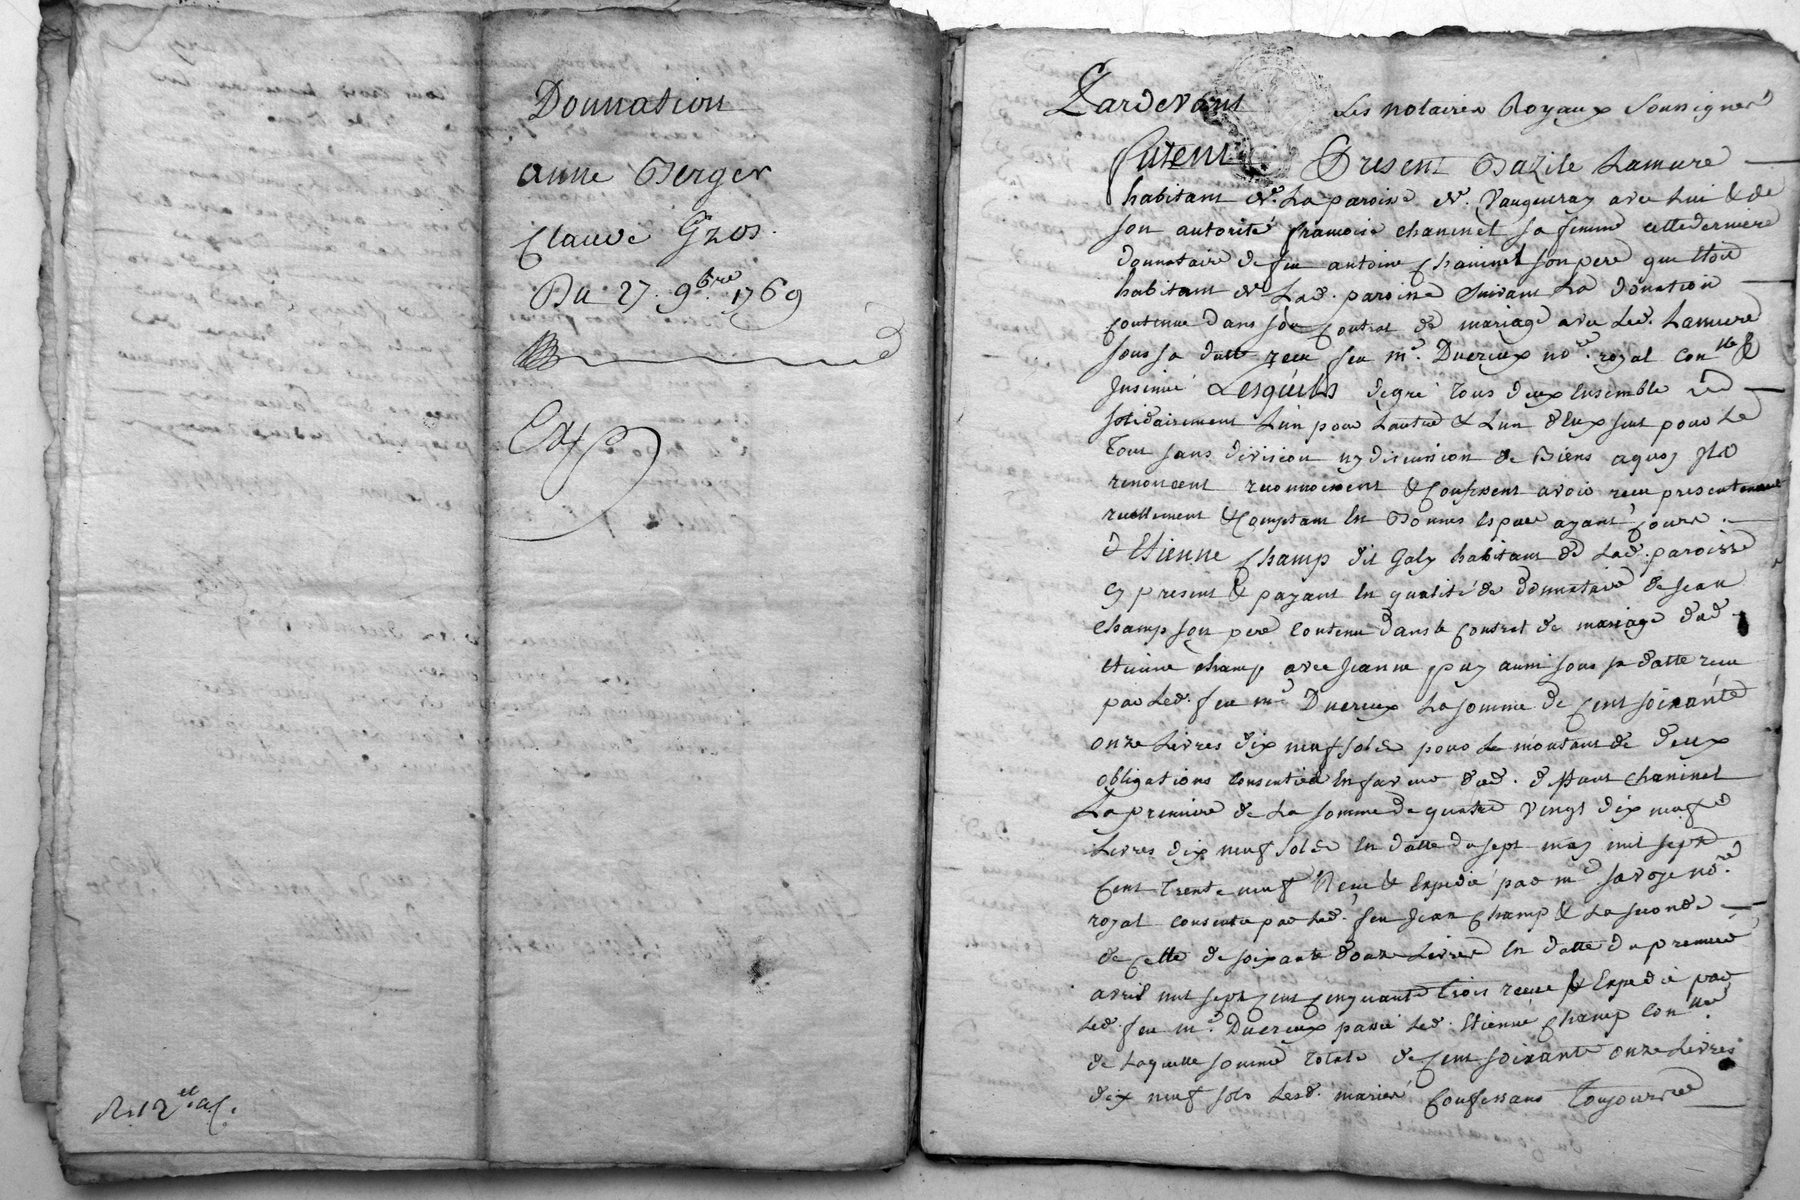 Donnation
anne Berger
Claude Gros.
Du 27. 9bre. 1769
Exp
Pardevant Les notaires Royaux soussignés
furent Present Bazile Lamure
habitant de La paroisse de Vaugneray avec lui & de
son autorité françoise chaninel sa femme cette derniere
donnataire de feu antoine Chaninel son pere qui Etoit
habitant de Lad. paroisse suivant La donation
Contenue dans son Contrat de mariage avec Led. Lamure
sous sa datte recu feu me. Ducreux nore. royal Conlle &
Insinué Lesquels degré tous deux Ensemble et
solidairement L'un pour L'autre & L'un d'Eux seul pour Le
Tout sans division ny discussion de Biens aquoy Ils
renoncent reconnoissent & Confessent avoir recu presentement
reellement & Comptant En Bonnes Espece ayant Cours
d'Etienne Champ dit Galy habitant de Lad. paroisse
cy present & payant En qualité de donnataire de Jean
Champ son pere Contenu dans le Contrat de mariage dud.
Etienne champ avec Jeanne Puy aussi sous sa datte recu
par Led. feu me Ducreux La somme de Cent soixante
onze Livres dix neuf sols pour Le montant de deux
obligations Consenties En faveur dud. deffunt Chaninel
La premiere de La somme de quatre vingt dix neuf
Livres dix neuf sols En datte du sept may mil sept
Cent Trente neuf Reçue & Expedié par me Savoye nore.
royal Consentie par Led. feu Jean Champ & La seconde
de Celle de soixante douze Livres En datte du premier
avril mil sept Cent Cinquante trois recue & Expedié par
Led. feu me. Ducreux passé Led. Etienne Champ Conllée
de Laquelle somme totale de Cent soixante onze Livres
dix neuf sols Lesd. mariés Confessans Toujours